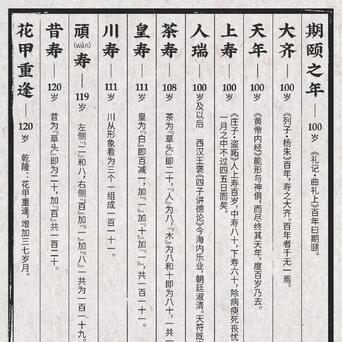 期颐之年——100岁 《礼记·曲礼上》百年曰期颐。
大齐——100岁 《列子·杨朱》百年，寿之大齐。百年者千无一焉。
天年——100岁 《黄帝内经》能形与神俱，而尽终其天年，度百岁乃去。
上寿——100岁 《庄子·盗跖》人上寿百岁，中寿八十，下寿六十，除病瘐死丧忧
一月之中不过四五日而矣。
人瑞——100岁及以后 西汉王褒《四子讲德论》今海内乐业，朝廷淑清。天符既
茶寿——108岁 茶为「草头」即二十，「人」为八，「木」为八和十即为八十，一共一
皇寿——111岁 皇为「白」即百减一，加「一」，加「十」加「一」，共一百一十一。
川寿——111岁 川从形象看为三个一组成一百一十一。
頑(wán)寿——119岁 左侧「二」和八，右侧「百」加「一」加「八」一共为一百一十九。
昔寿——120岁 昔为「草头」即为二十，加「百」共一百二十。
花甲重逢——120岁 乾隆：花甲重逢，增加三七岁月。